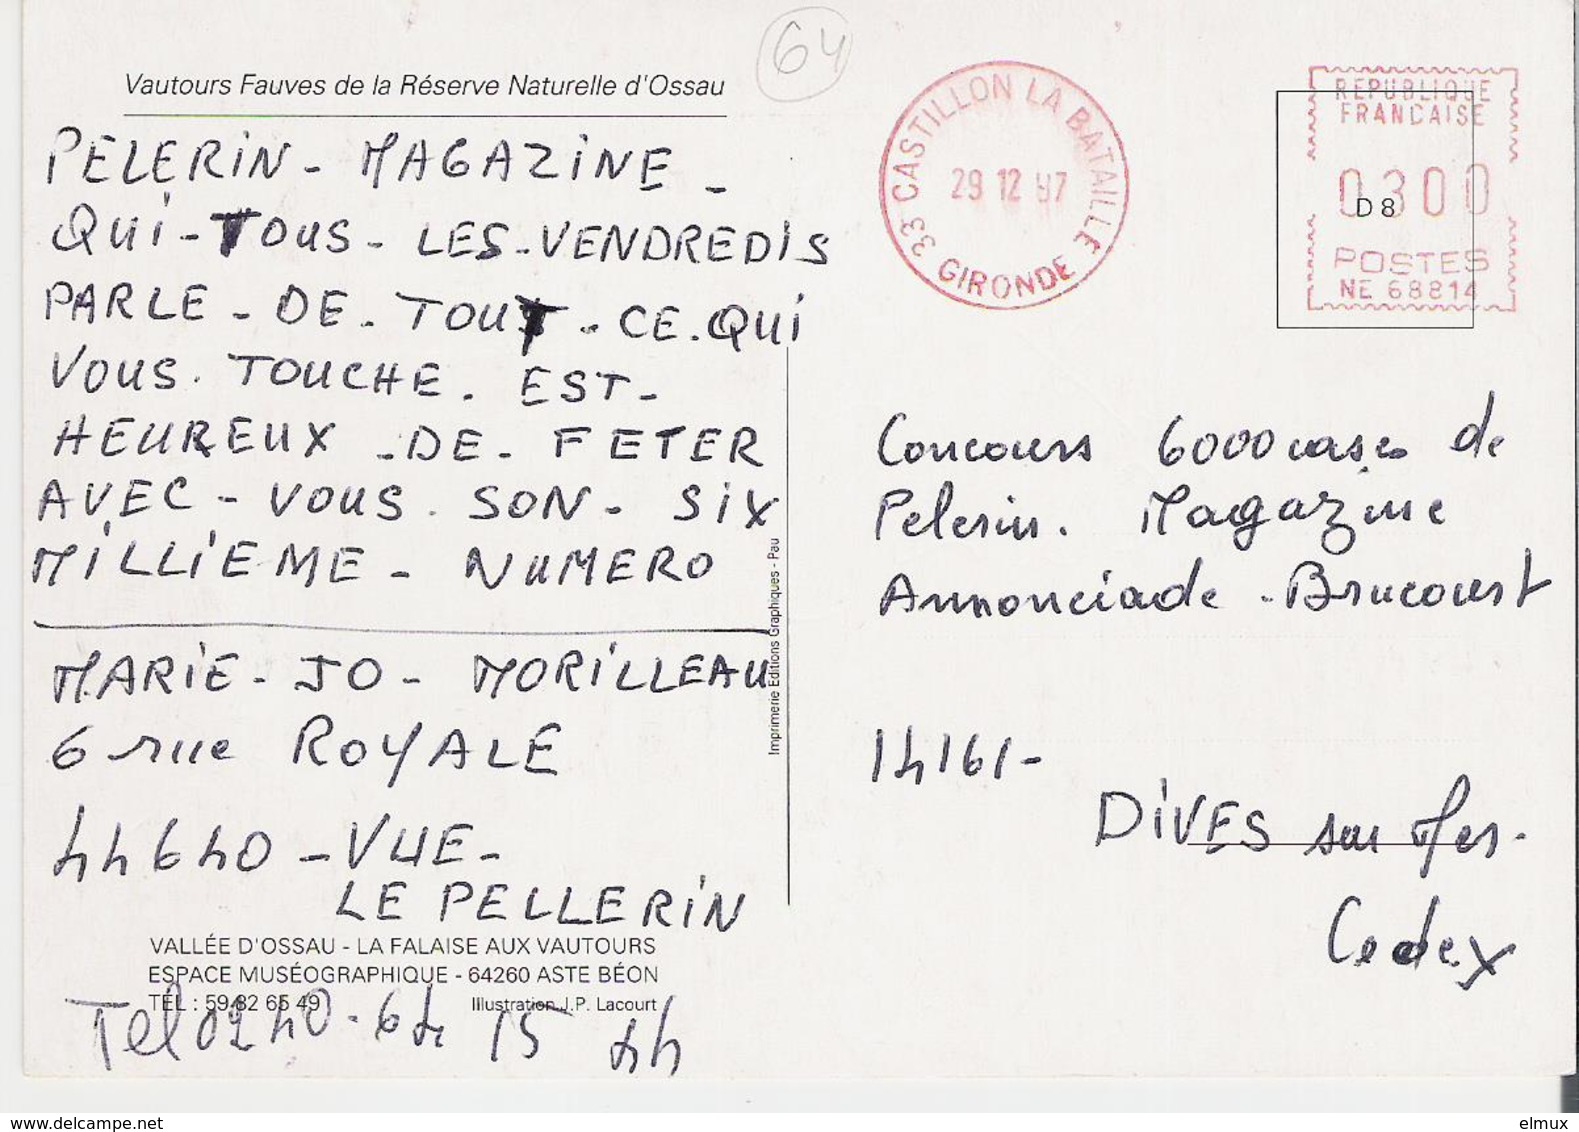 64
Vautours Fauves de la Réserve Naturelle d'Ossau
PELERIN - MAGAZINE -
QUI - TOUS - LES - VENDREDIS
PARLE - DE - TOUT - CE - QUI
VOUS - TOUCHE - EST -
HEUREUX - DE - FETER
AVEC - VOUS - SON - SIX
MILLIEME - NUMERO
MARIE - JO - MORILLEAU
6 rue ROYALE
44640 - VUE -
LE PELLERIN
VALLÉE D'OSSAU - LA FALAISE AUX VAUTOURS
ESPACE MUSÉOGRAPHIQUE - 64260 ASTE BÉON
TÉL : 59 82 65 49 Illustration J.P. Lacourt
Tel 02 40 - 64 15 44
Imprimerie Editions Graphiques - Pau
33 CASTILLON LA BATAILLE
29 12 97
GIRONDE
REPUBLIQUE
FRANCAISE
0300
D8
POSTES
NE 68814
Concours 6000 cases de
Pelerin. Magazine
Annonciade - Brucourt
14161 -
DIVES sur Mer -
Cedex
www.delcampe.net
elmux